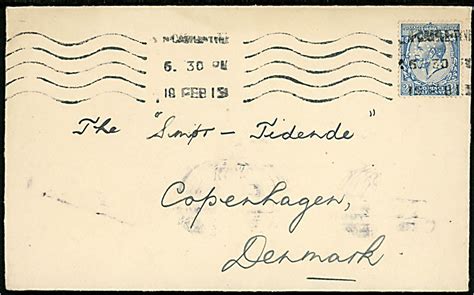 6. 30 PM
18 FEB 15
6. 30
The "Smør - Tidende"
Copenhagen,
Denmark